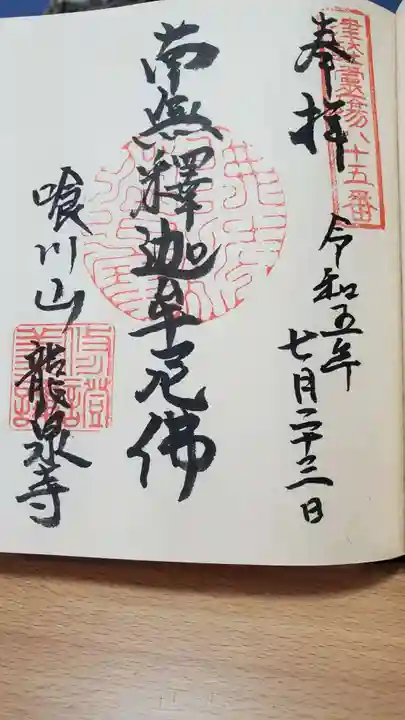 奉拝
霊場八十五番
令和五年七月二十三日
南無釋迦牟尼佛
喰川山龍泉寺